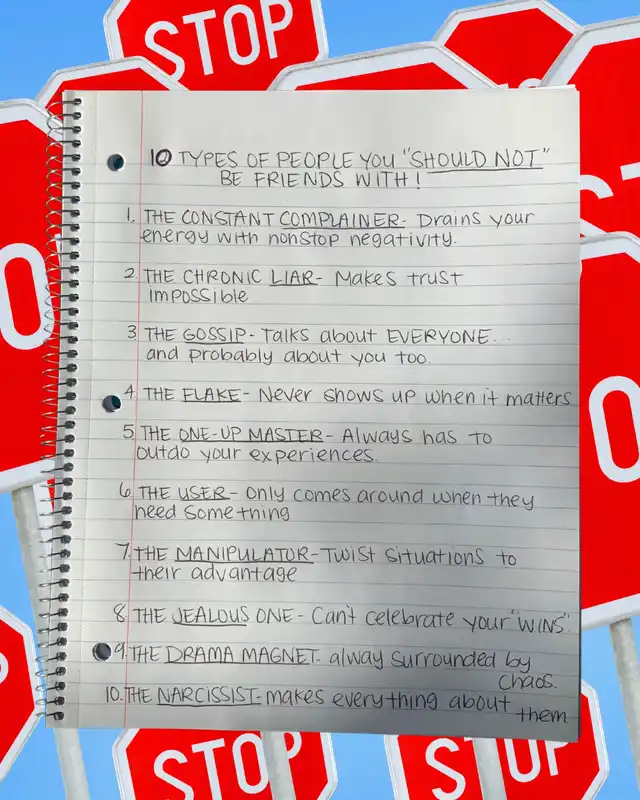 STOP
10 TYPES OF PEOPLE YOU "SHOULD NOT"
BE FRIENDS WITH!
1. THE CONSTANT COMPLAINER- Drains your
energy with nonstop negativity.
2. THE CHRONIC LIAR- Makes trust
impossible
3. THE GOSSIP- Talks about EVERYONE...
and probably about you too.
4. THE FLAKE- Never shows up when it matters
5. THE ONE-UP MASTER- Always has to
outdo your experiences.
6. THE USER- Only comes around when they
need something
7. THE MANIPULATOR- Twist situations to
their advantage
8. THE JEALOUS ONE- Can't celebrate your "WINS".
9. THE DRAMA MAGNET- alway surrounded by
chaos.
10. THE NARCISSIST- makes everything about
them
STOP
STOP